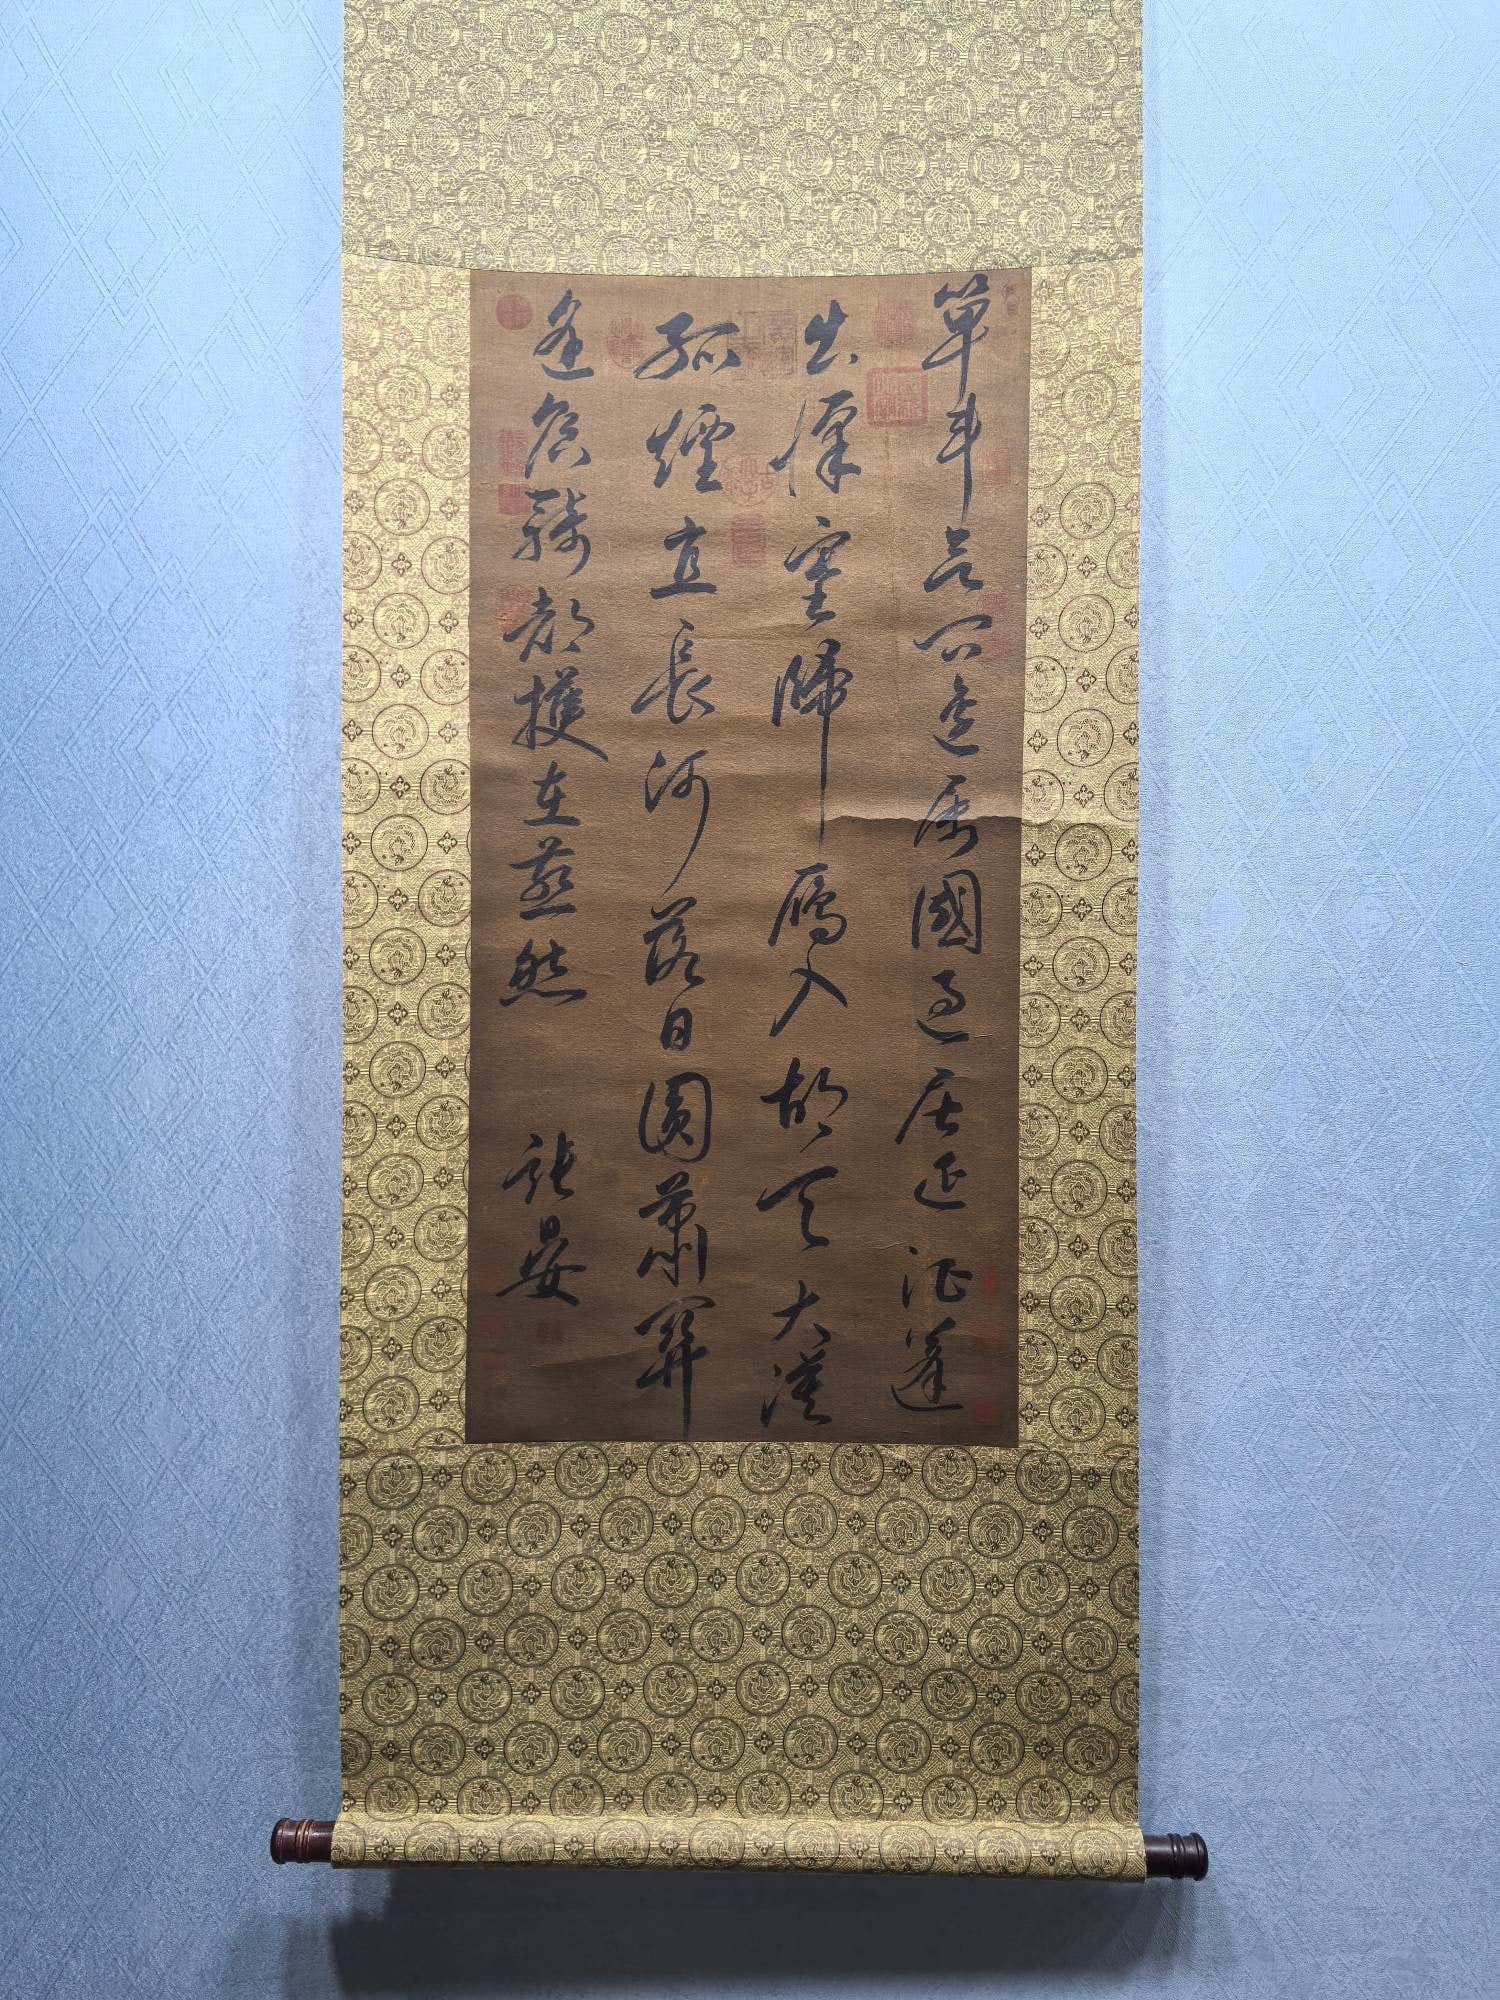 單車欲問邊屬國過居延征蓬
出漢塞歸鴈入胡天大漠
孤煙直長河落日圓蕭關
逢候騎都護在燕然 張晏